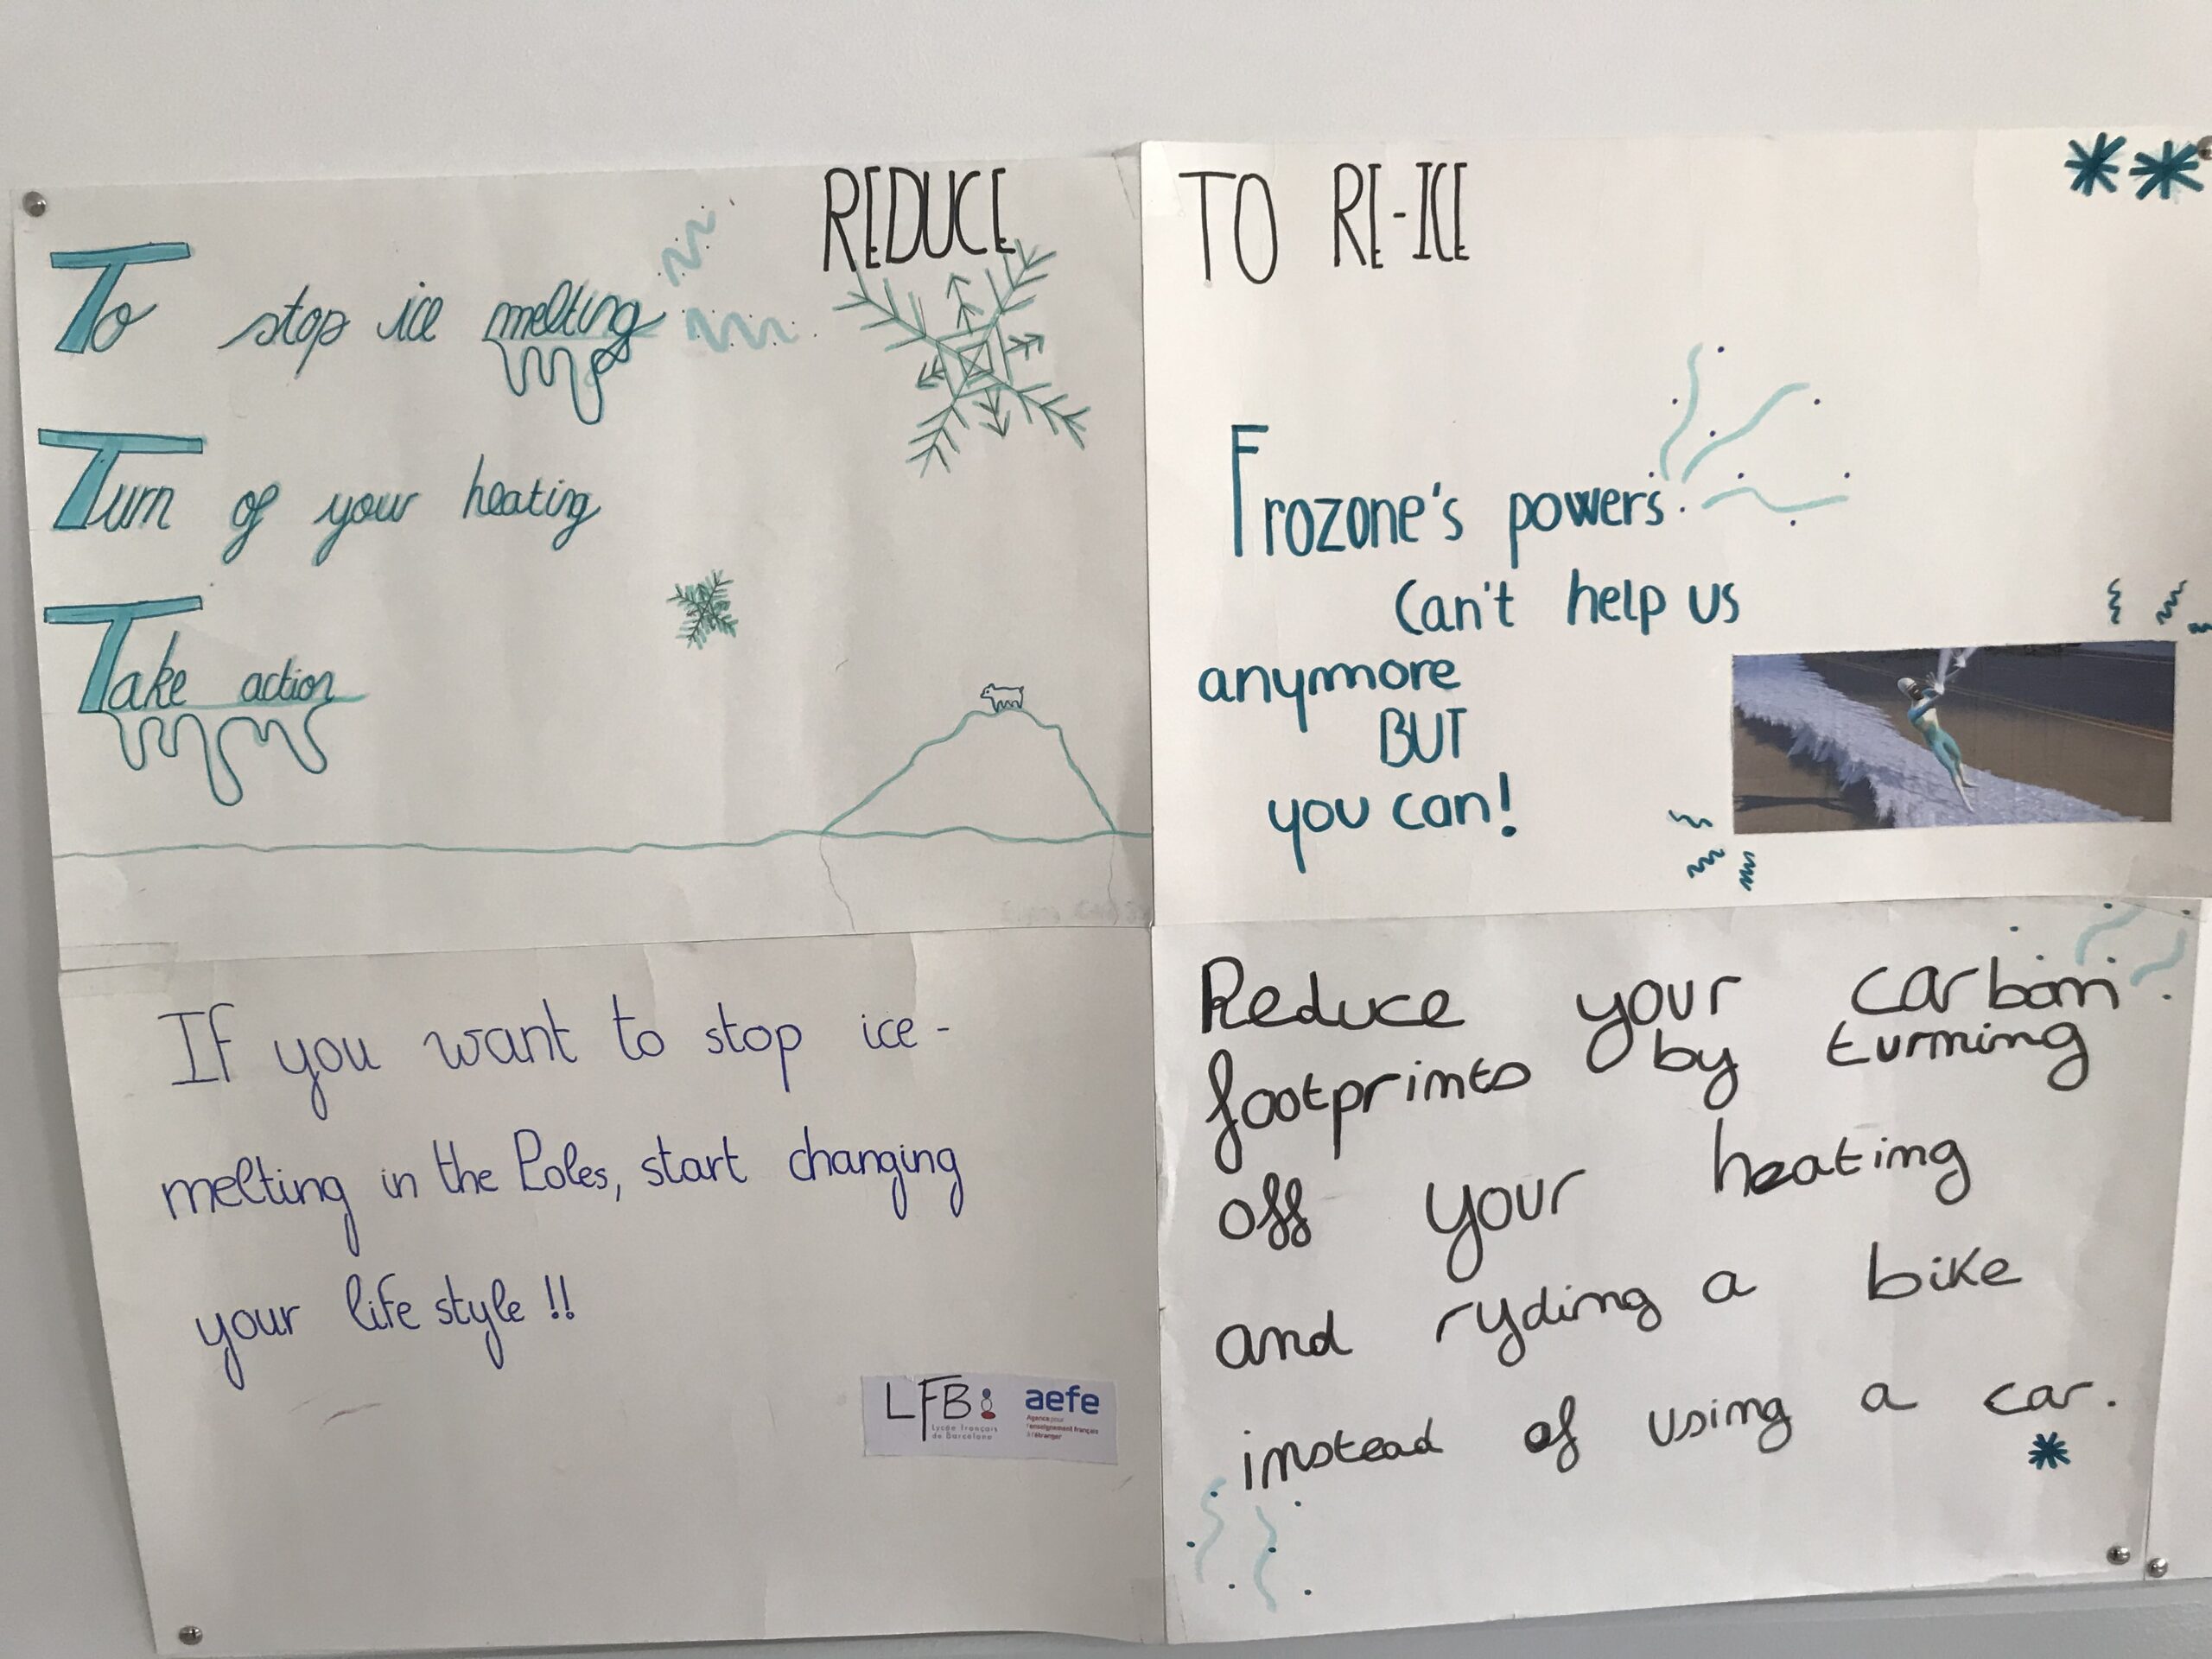 REDUCE TO RE-ICE
To stop ice melting
Turn of your heating
Take action
Frozone's powers
Can't help us
anymore
BUT
you can!
If you want to stop ice-
melting in the Poles, start changing
your life style !!
LFB
Lycée Français
de Barcelone
aefe
Agence pour
l'enseignement français
à l'étranger
Reduce your carbon
footprints by turning
off your heating
and ryding a bike
instead of using a car.